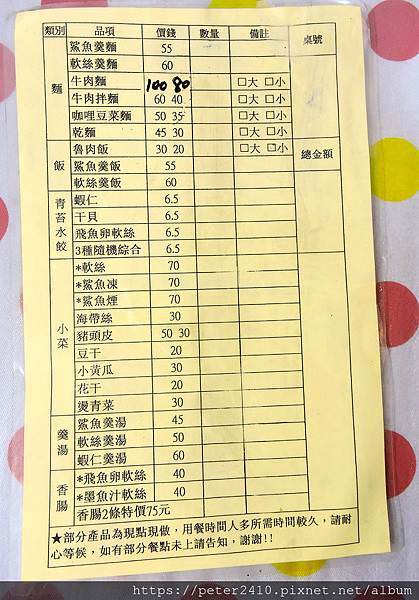 類別 品項 價錢 數量 備註 桌號
麵 鯊魚羹麵 55
軟絲羹麵 60
牛肉麵 100 80 □大 □小
牛肉拌麵 60 40 □大 □小
咖哩豆菜麵 50 35 □大 □小
乾麵 45 30 □大 □小
飯 魯肉飯 30 20 □大 □小 總金額
鯊魚羹飯 55
軟絲羹飯 60
青苔水餃 蝦仁 6.5
干貝 6.5
飛魚卵軟絲 6.5
3種隨機綜合 6.5
小菜 *軟絲 70
*鯊魚凍 70
*鯊魚煙 70
海帶絲 30
豬頭皮 50 30
豆干 20
小黃瓜 30
花干 20
燙青菜 30
羹湯 鯊魚羹湯 45
軟絲羹湯 50
蝦仁羹湯 60
香腸 *飛魚卵軟絲 40
*墨魚汁軟絲 40
香腸2條特價75元
★部分產品為現點現做，用餐時間人多所需時間較久，請耐
心等候，如有部分餐點未上請告知，謝謝!!
https://peter2410.pixnet.net/album